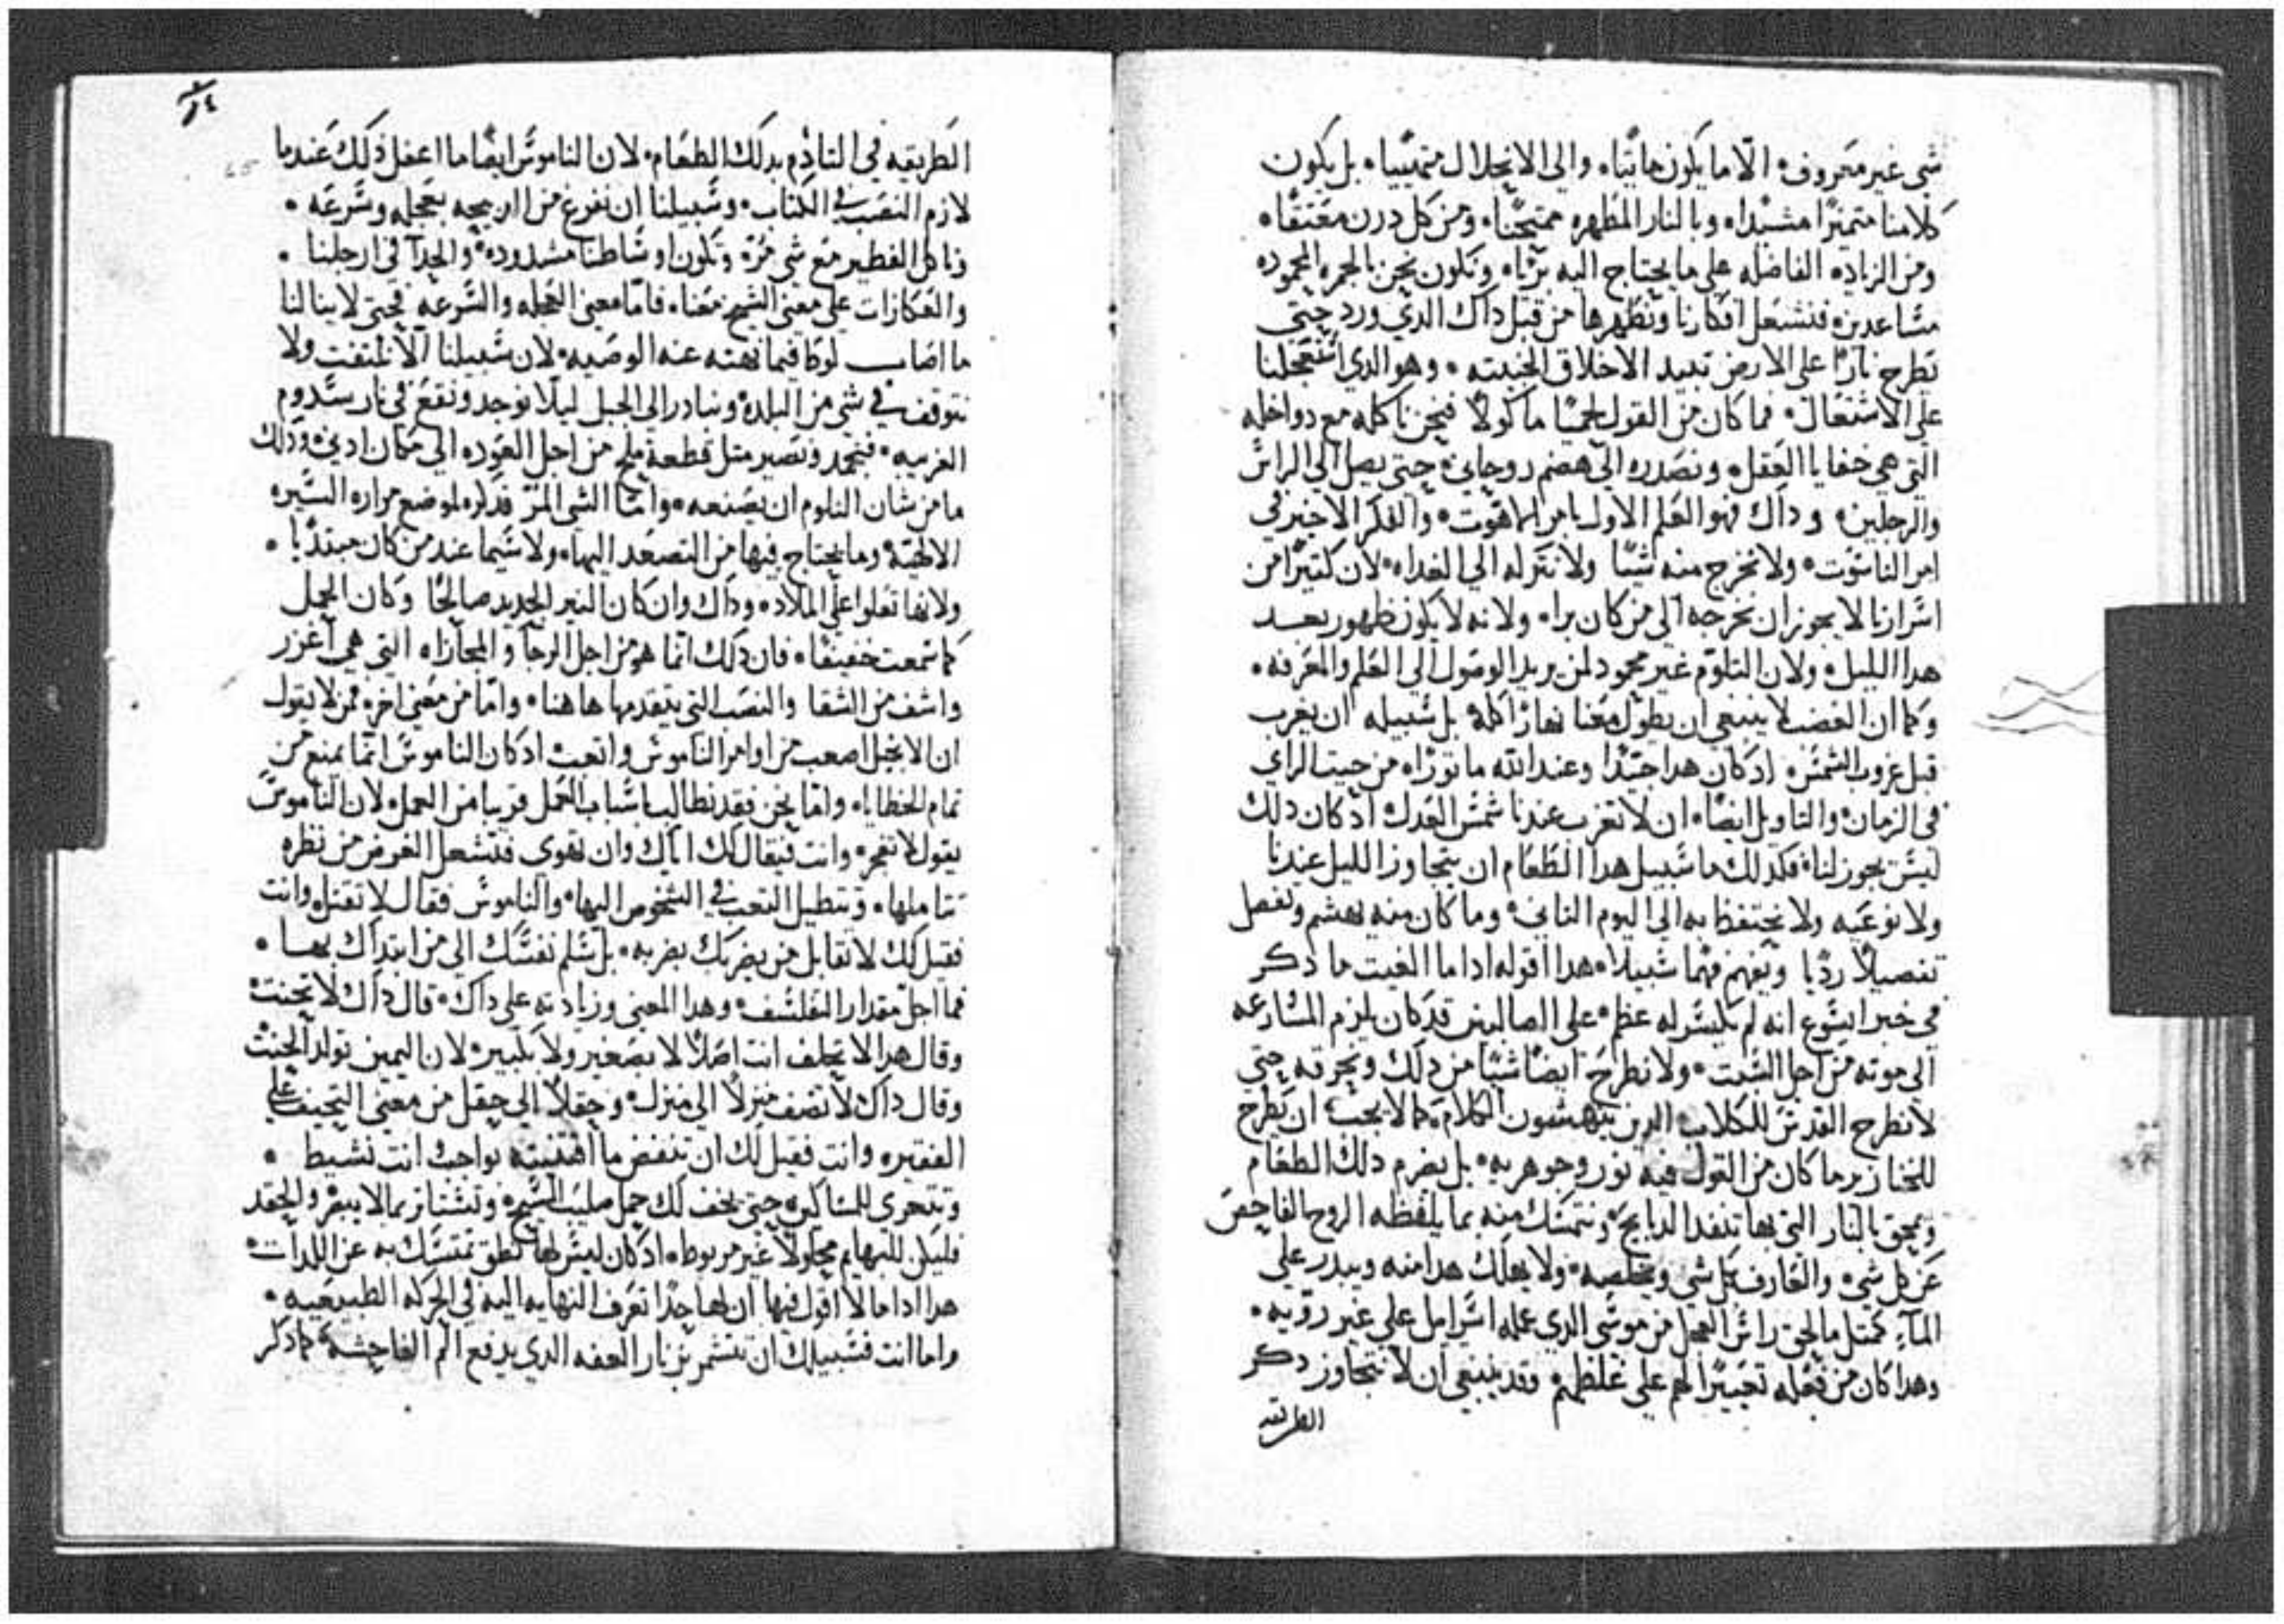 شي غير معروف الا ما يكون مايتًا والي الانحلال متهييا بل يكون
كلامنا متميزًا مشيدا وبالنار المطهره ممتحنا ومن كل درن معتقا
ومن الزياده الفاضله علي ما يحتاج اليه بريا ونكون نحن بالجمره المحموده
مساعدين فنشعل افكارنا ونطهرها من قبل داك الدي ورد حتي
يطرح نارًا علي الارض تبيد الاخلاق الخبيثه وهو الدي استعجلنا
علي الاشتعال فما كان من القول لحميًا ماكولًا فنحن ناكله مع دواخله
التي هي خفايا العقل ونصدره الي هضم روحاني حتي يصل الي الراس
والرجلين وداك فهو العلم الاول بامر اللاهوت والفكر الاخير في
امر الناسوت ولا نخرج منه شيًا ولا نتركه الي الغداه لان كثيرًا من
اسرارنا لا يجوز ان نخرجه الي من كان برا ولانه لا يكون ظهور بعد
هدا الليل ولان التلوم غير محمود لمن يريد الوصول الي العلم والمعرفه
وكما ان الغضب لا ينبغي ان يطول معنا نهارًا كله بل سبيله ان يغرب
قبل غروب الشمس اد كان هدا جيدًا وعند الله ما نوراه من حيث الراي
في الزمان والتاويل ايضًا ان لا تغرب عندنا شمس العدل اد كان دلك
ليس يجوز لنا فكدلك ما سبيل هدا الطعام ان يتجاوز الليل عندنا
ولا نوعيه ولا نحتفظ به الي اليوم الثاني وما كان منه يهشم ويفصل
تفصيلًا رديا ويفهم فهما سبيلا هدا اقوله اداما الغيت ما دكر
في خبر ايسوع انه لم يكسر له عظم علي الصاليبين قد كان يلزم المسارعه
الي موته من اجل السبت ولا نطرح ايضًا شيًا من دلك ونحرقه حتي
لا نطرح القدس للكلاب الدين ينهشون الكلام كما لا يجب ان يطرح
للخنازير ما كان من القول فيه نور وجوهريه بل يضرم دلك الطعام
ويمحق بالنار التي بها تنفد الدبايح ونتمسك منه بما يلفظه الروح الفاحص
عن كل شي والعارف كل شي ويخلصه ولا يهلك هدا منه ويبدر علي
المآء كمثل ما لحق راس العجل من موسي الدي عمله اسراييل علي غير رويه
وهدا كان من فعله تعييرًا لهم علي غلظهم وقد ينبغي ان لا نتجاوز دكر
الطريقه
الطريقه في التاذم بدلك الطعام لان الناموس ايضًا ما اغفل دلك عندما
لازم النصب في الكتاب وسبيلنا ان نفرغ من اربيجه بعجله وسرعه
وناكل الفطير مع شي مر وتكون اوساطنا مشدوده والحدآ في ارجلنا
والعكازات علي معني الشيخ معنا فاما معني العجله والسرعه فحتي لا ينالنا
ما اصاب لوطا فيما نهته عنه الوصيه لان سبيلنا الا نلتفت ولا
نتوقف في شي من البلده ونبادر الي الجبل ليلا نوجد ونقع في نار سدوم
الغريبه فنجمد ونصير مثل قطعة ملح من اجل العوده الي مكان ادني ودلك
ما من شان التلوم ان يصنعه واما الشي المر فدكره لموضع مراره السيره
الالهيه وما يحتاج فيها من التصعد اليها ولا سيما عند من كان مبتديًا
ولانها تعلوا علي الملاد وداك وان كان النير الجديد صالحًا وكان الحمل
كما سمعت خفيفا فان دلك انما هو من اجل الرجا والمجازاه التي هي اغزر
واشف من الشقا والنصب التي يتقدمها هاهنا واما من معني اخر فمن لا يقول
ان الانجيل اصعب من اوامر الناموس واتعب اد كان الناموس انما يمنع من
تمام الخطايا واما نحن فقد نطالب باسباب العمل قريبا من العمل لان الناموس
يقول لا تفجر وانت فيقال لك اياك وان تهوي فتشعل الغرض من نظره
تتاملها وتتطيل التعب في الشخوص اليها والناموس فقال لا تقتل وانت
فقيل لك لا تقابل من يضربك بضربه بل سلم نفسك الي من ابتداك بها
فما اجل مقدار التفلسف وهدا المعني وزيادته علي داك قال داك لا تحنث
وقال هدا لا تحلف انت اصلًا لا بصغير ولا بكبير لان اليمين تولد الحنث
وقال داك لا تضف منزلًا الي منزل وحقلًا الي حقل من معني التحيف علي
الفقير وانت فقيل لك ان تنفض ما اقتنيته بواجب انت نشيط
وتتعري للمساكين حتي يخف لك حمل صليب المسيح وتستتار بما لا يبصر والحقد
فليكن للبهايم محلولًا غير مربوط اد كان ليس لها نطق تمتسك به عن اللدات
هدا اداما لا اقول فيها ان لها حدًا تعرف النهايه اليه في الحركه الطبيعيه
واما انت فسبيلك ان تتشمر بزنار العفه الدي يدفع الم الفاحشه كما دكر